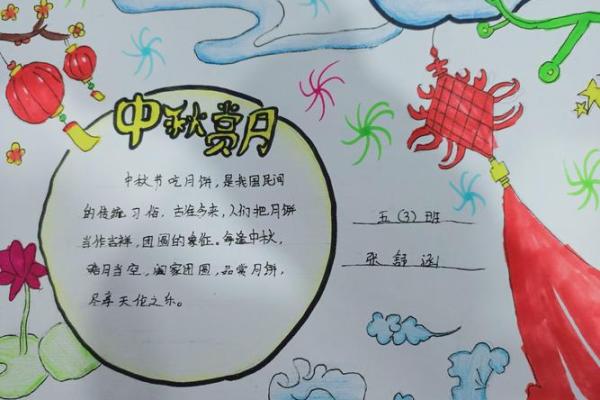 中秋赏月
中秋节吃月饼,是我国民间
的传统习俗,古往今来,人们把月饼
当作吉祥,团圆的象征。每逢中秋,
皓月当空,阖家团圆,品尝月饼,
尽享天伦之乐。
五(3)班
张舒涵